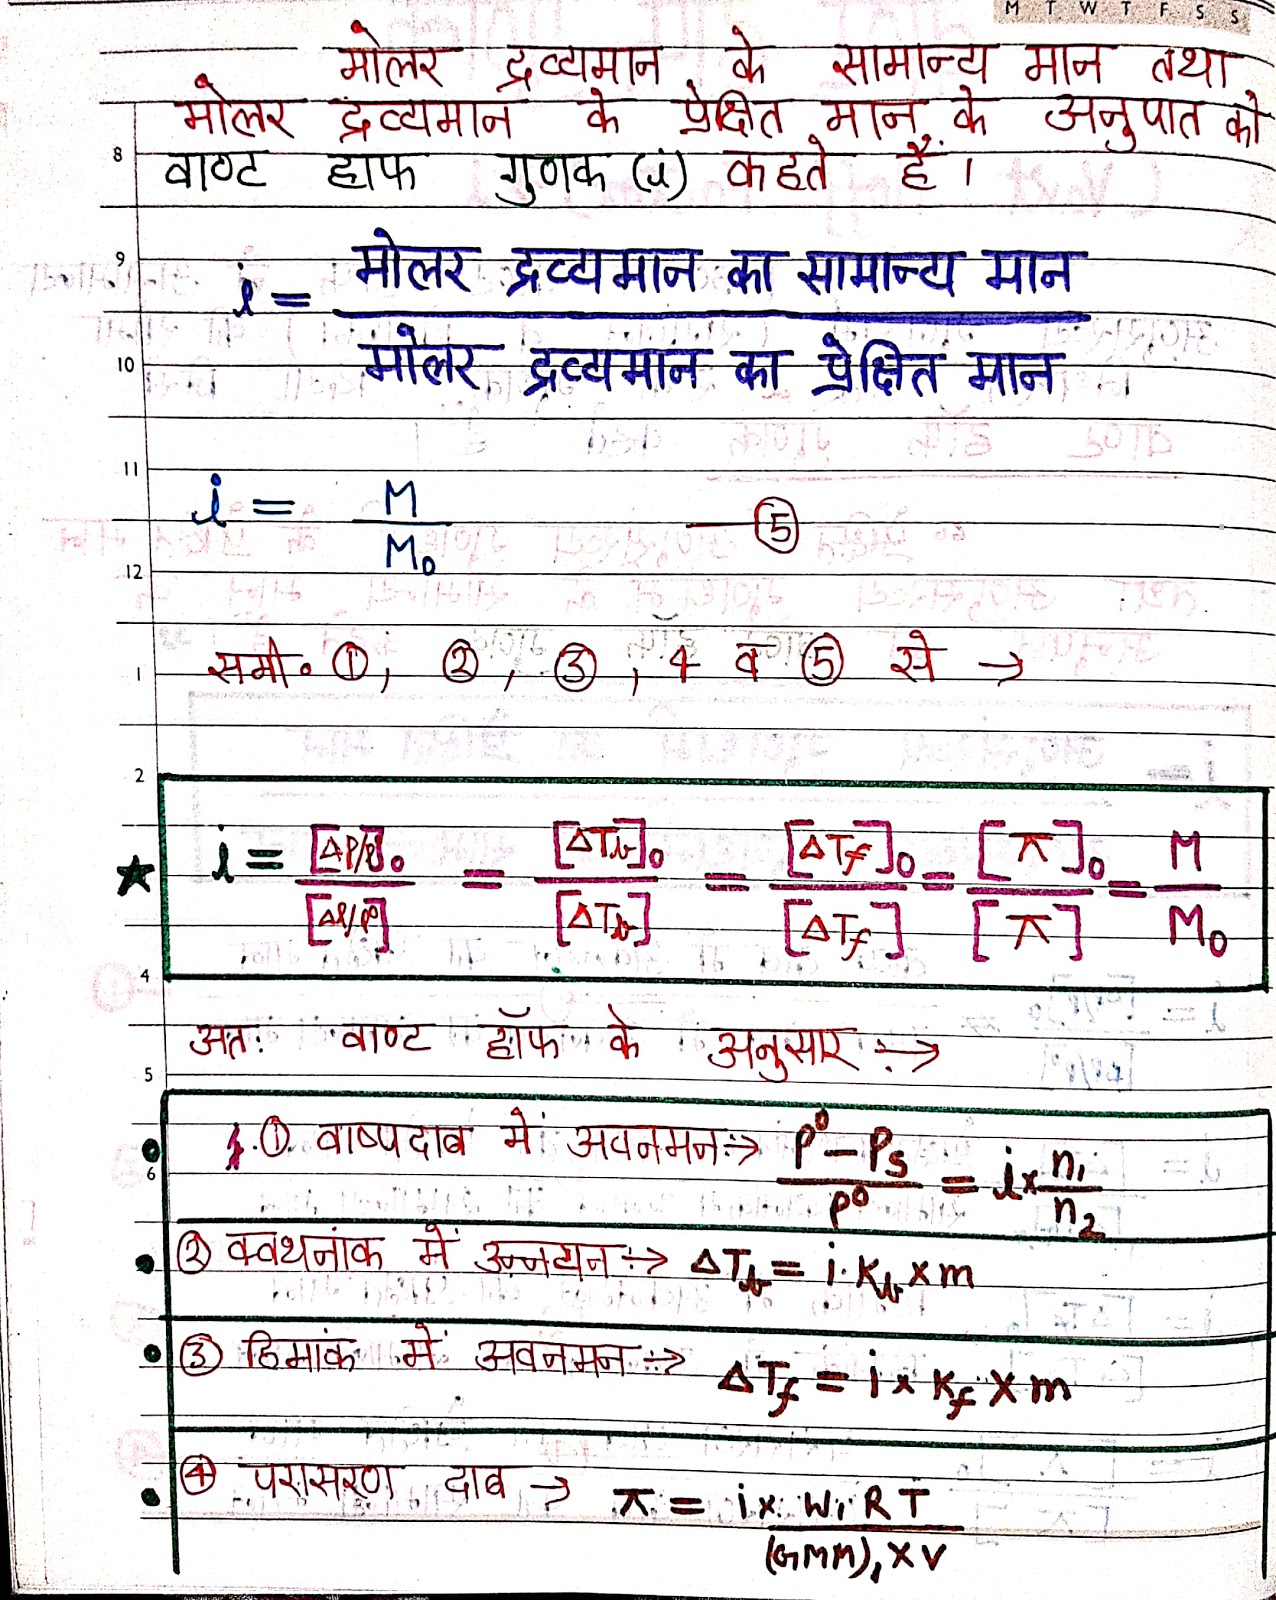 M T W T F S S
मोलर द्रव्यमान के सामान्य मान तथा
मोलर द्रव्यमान के प्रेक्षित मान के अनुपात को
8 वाण्ट हाफ गुणक (i) कहते हैं।
9 i = मोलर द्रव्यमान का सामान्य मान
10 मोलर द्रव्यमान का प्रेक्षित मान
11
i = M / M₀ — ⑤
12
1 समी० ①, ②, ③, 4 व ⑤ से →
2
★ i = [ΔP/P]₀ / [ΔP/P⁰] = [ΔT_b]₀ / [ΔT_b] = [ΔT_f]₀ / [ΔT_f] = [π]₀ / [π] = M / M₀
4
अतः वाण्ट हॉफ के अनुसार :→
5
① वाष्पदाब में अवनमन :→ P⁰ – Pₛ / P⁰ = i × n₁ / n₂
6
② क्वथनांक में उन्नयन :→ ΔT_b = i. K_b × m
③ हिमांक में अवनमन :→ ΔT_f = i × K_f × m
④ परासरण दाब → π = i × W₁ R T / (GMM)₁ × V